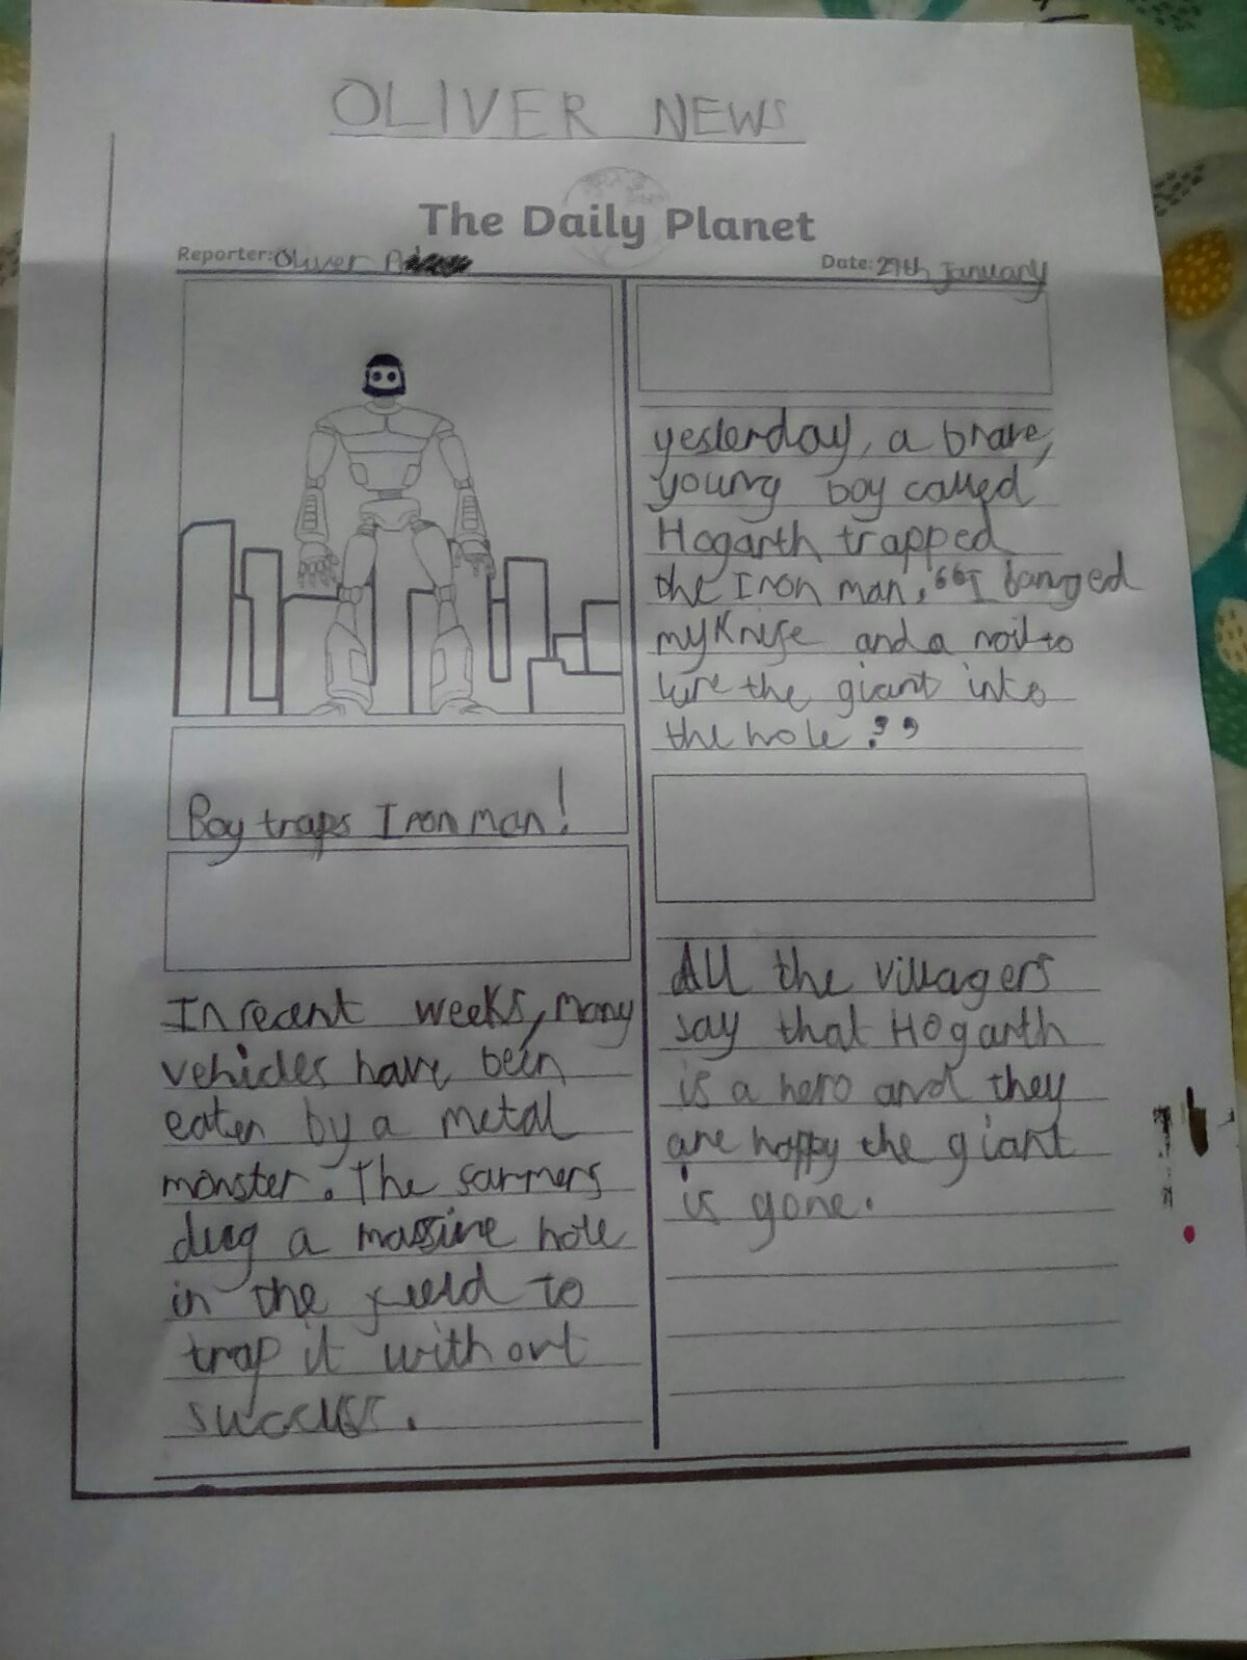 OLIVER NEWS
The Daily Planet
Reporter: Oliver
Date: 29th January
Boy traps Iron man!
In recent weeks, many
vehicles have been
eaten by a metal
monster. The farmers
dug a massive hole
in the field to
trap it without
success.
yesterday, a brave,
young boy called
Hogarth trapped
the Iron man, "I banged
my knife and a nail to
lure the giant into
the hole."
All the villagers
say that Hogarth
is a hero and they
are happy the giant
is gone.